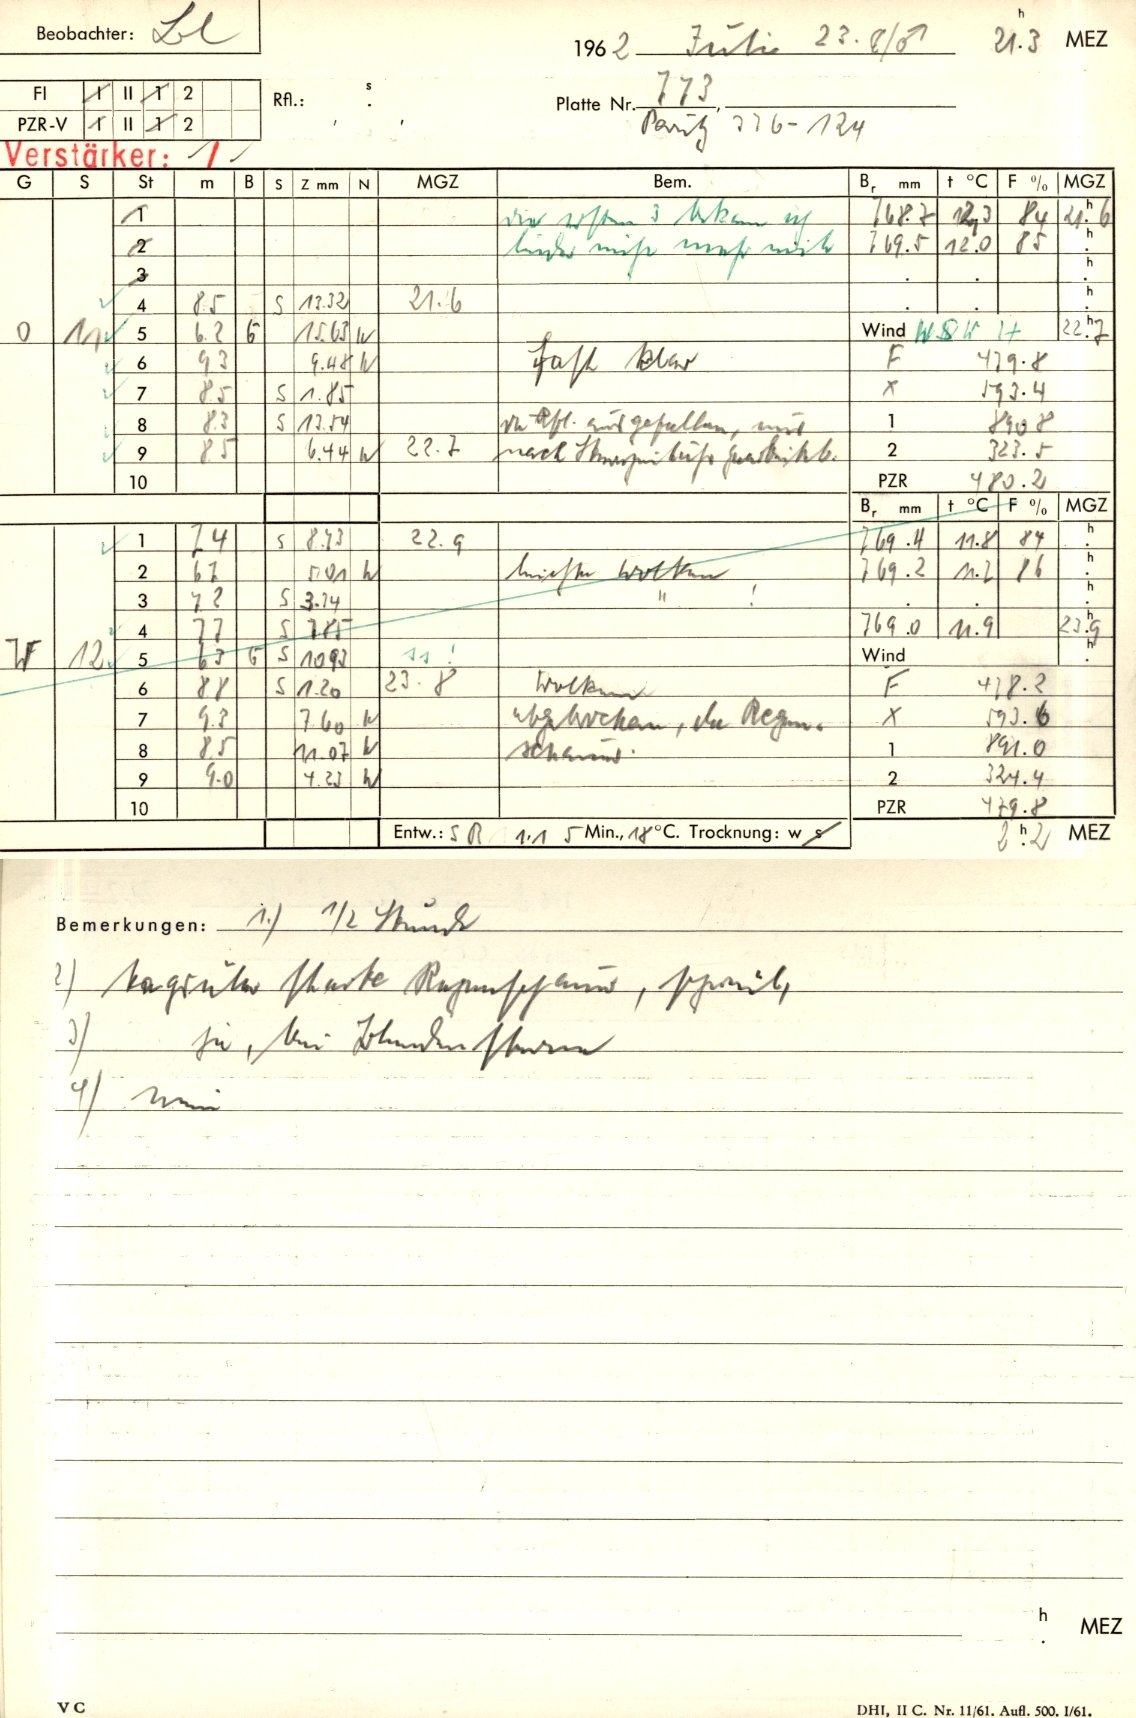 Beobachter: Lbl
1962 Juli 23. 21.3 h MEZ
FI 1 II 1 2
Rfl.: s
Platte Nr. 773,
PZR-V 1 II 1 2
776-124
Verstärker: 1
G S St m B S Z mm N MGZ Bem. Br mm t °C F % MGZ
1 die ersten 3 bekam ich 768.7 12.3 84 21.6 h
2 leider nicht mehr mit 769.5 12.0 85 h
3 h
4 8.5 S 13.32 21.6 h
O 11 5 6.2 6 15.63 W Wind WSW 22.7 h
6 9.3 9.48 W fast klar F 479.8
7 8.5 S 1.85 x 593.4
8 8.3 S 13.54 ausgefallen, 1 890.8
9 8.5 6.44 W 22.7 nach 2 323.5
10 PZR 480.2
Br mm t °C F % MGZ
1 7.4 S 8.93 22.9 769.4 11.8 84 h
2 6.7 5.01 W leichte Wolken 769.2 11.7 86 h
3 7.2 S 3.74 " ! h
4 7.7 S 7.85 769.0 11.9 23.9 h
W 12 5 6.3 6 S 10.93 ss! Wind h
6 8.8 S 1.20 23.8 Wolken F 478.2
7 9.3 7.60 W abgebrochen, da Regen- x 593.6
8 8.5 11.07 W schauer. 1 891.0
9 9.0 4.23 W 2 324.4
10 PZR 479.8
Entw.: SR 1:1 5 Min., 18 °C. Trocknung: w s 2.2 h MEZ
Bemerkungen: 1.) 1/2 Stunde
2) tagsüber starke Regenschauer,
3) ja, bei
4) nein
h
MEZ
V C
DHI, II C. Nr. 11/61. Aufl. 500. I/61.